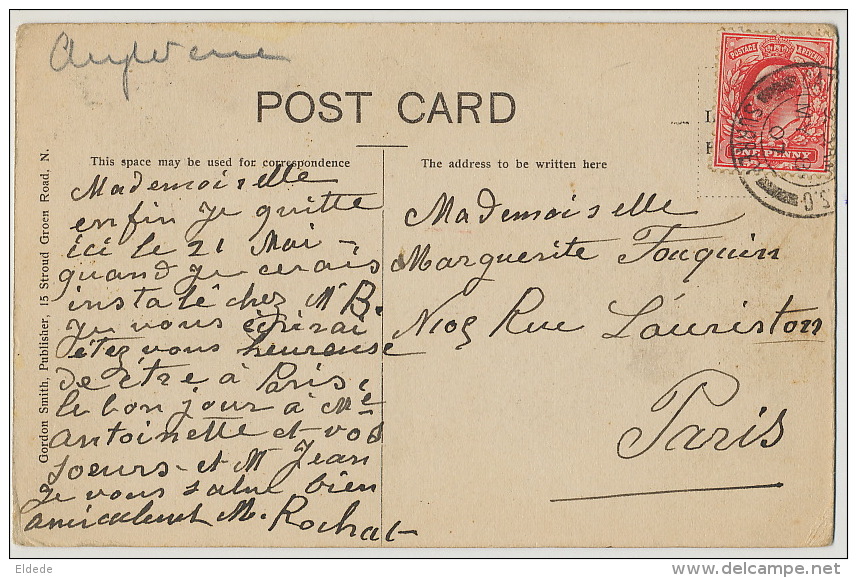 Angleterre
POST CARD
This space may be used for correspondence
The address to be written here
Gordon Smith, Publisher, 15 Stroud Green Road, N.
POSTAGE & REVENUE
ONE PENNY
S.O.
Mademoiselle
enfin je quitte
ici le 21 Mai -
quand je cerais
instalé chez Mr B.
Je vous éçrirai
étez vous heureuse
de être à Paris,
le bon jour à Me
antoinette et vos
soeurs - et Mr Jean
Je vous salue bien
amicalemt M. Rochat -
Mademoiselle
Marguerite Fouquin
N 105 Rue Lauriston
Paris
Eldede
www.delcampe.net